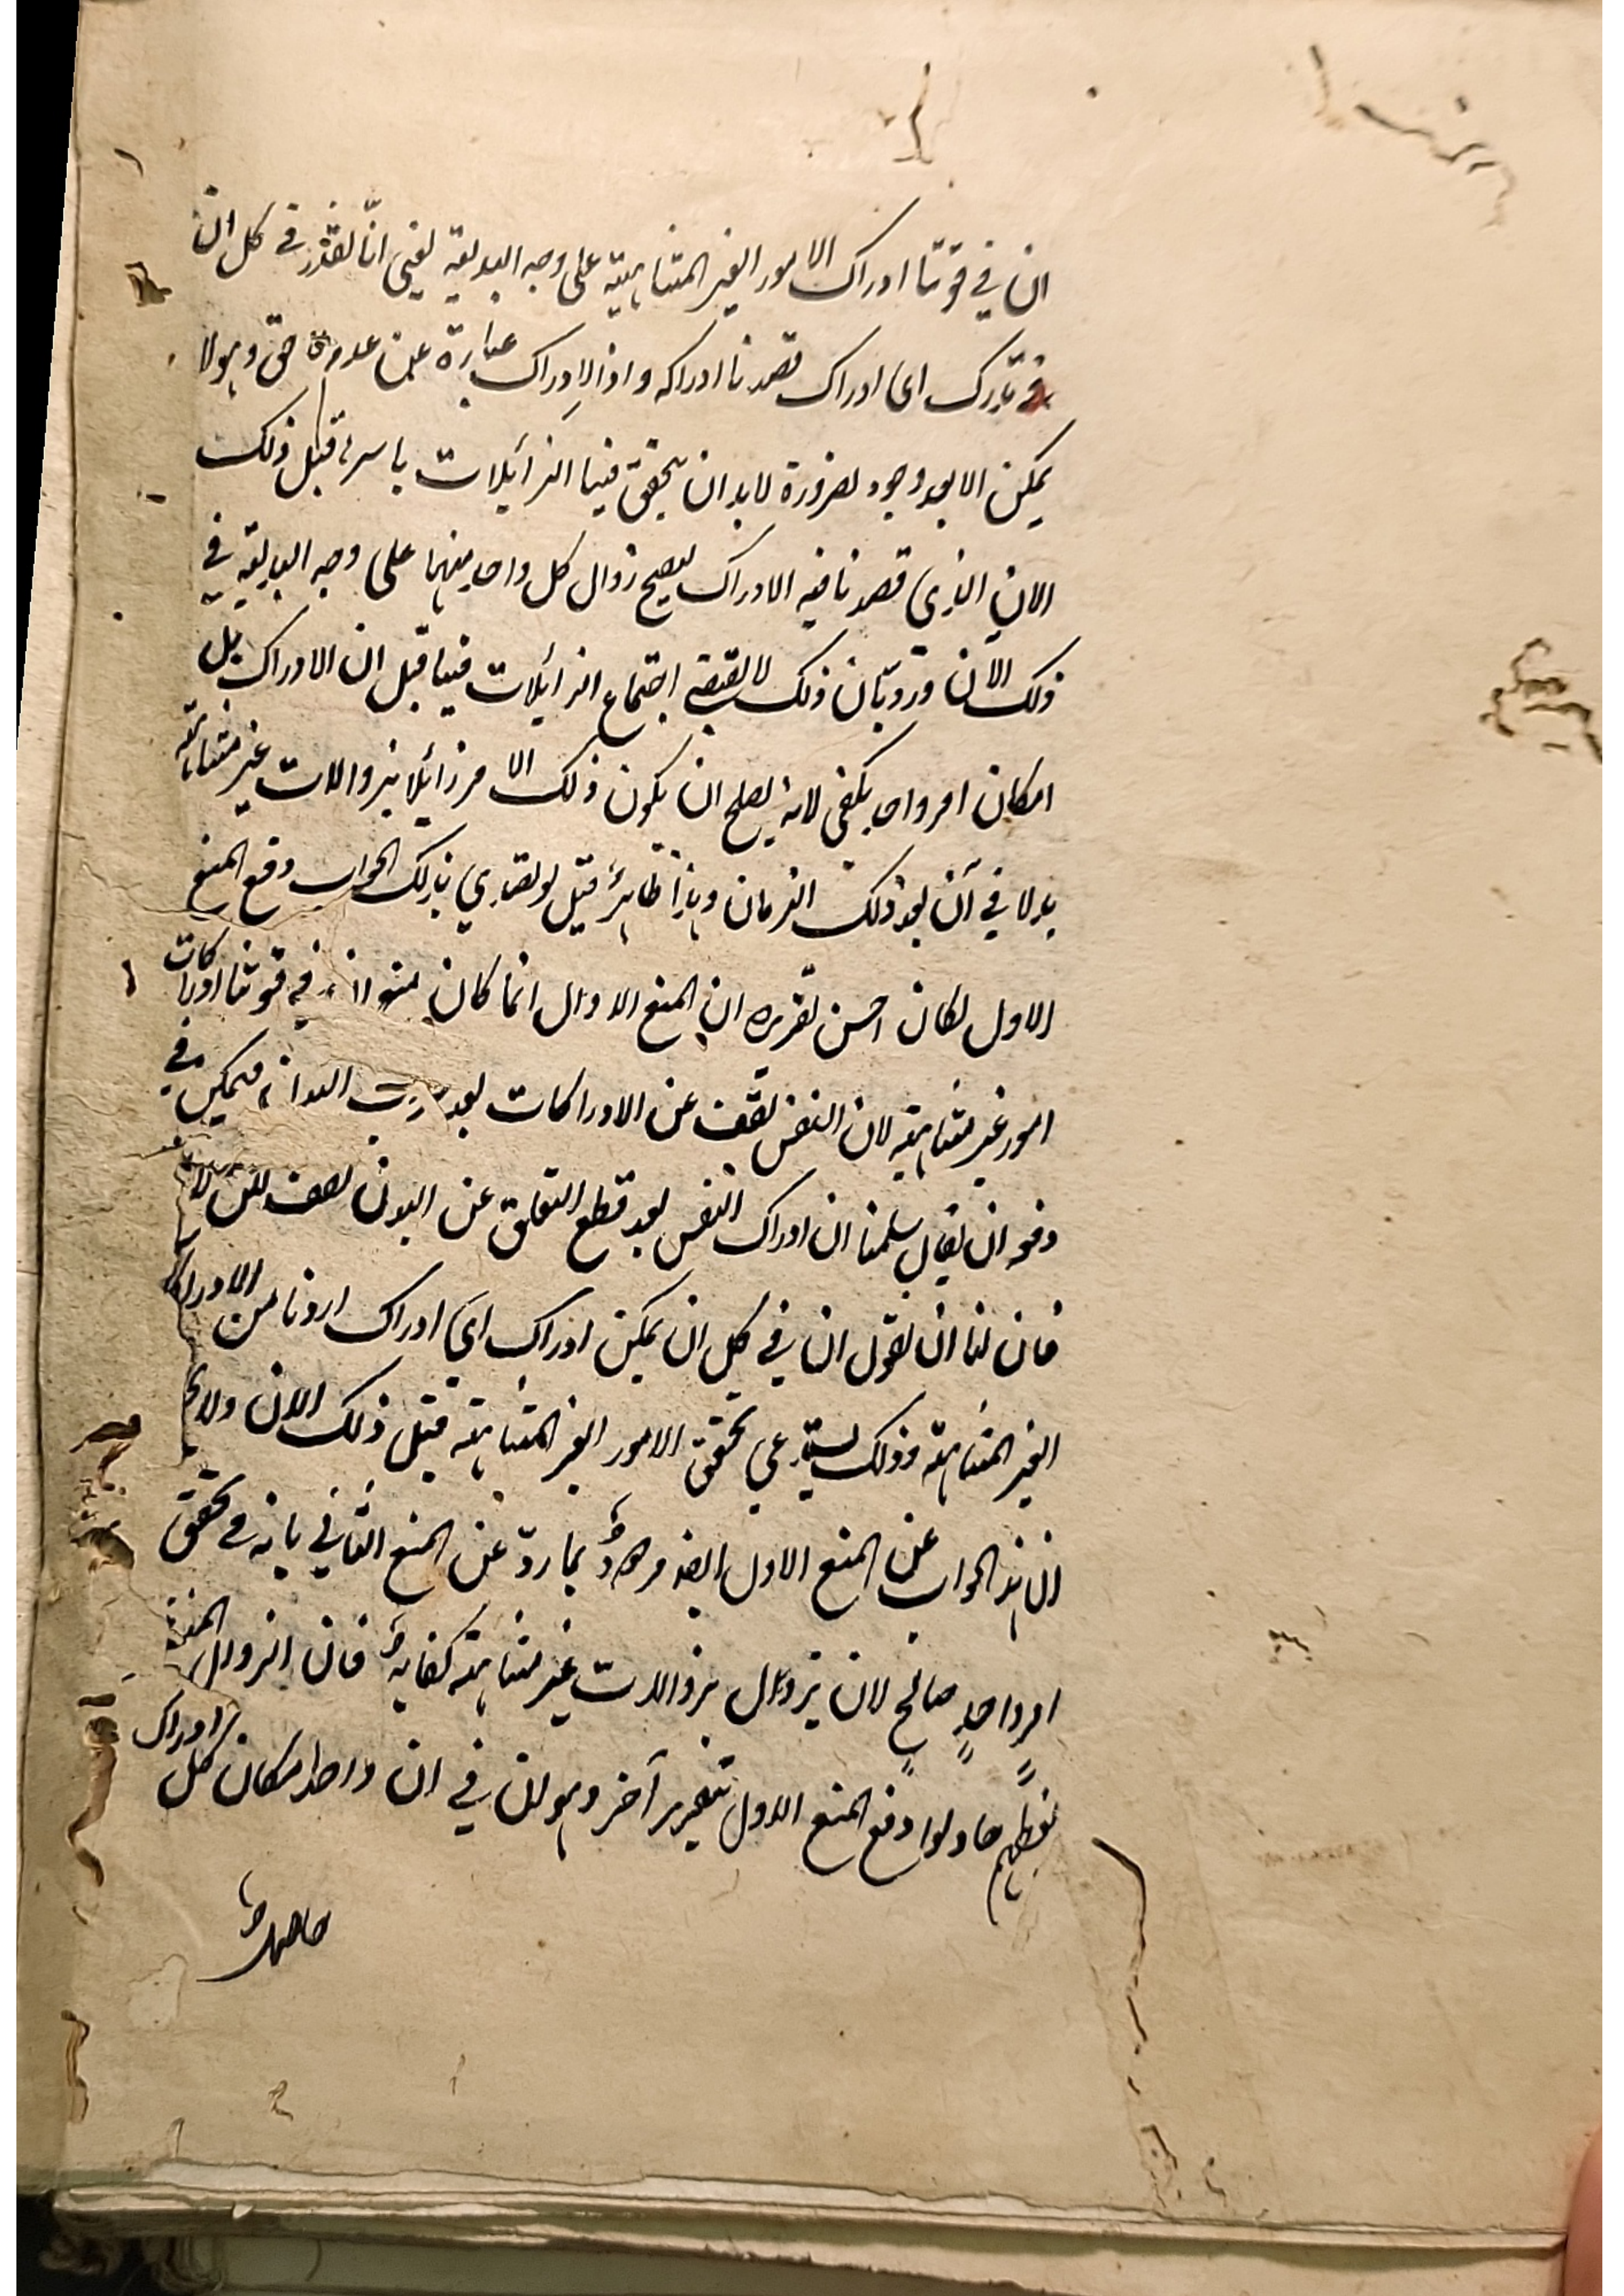 ان في قوتنا ادراك الامور الغير المتناهية على وجه البدلية يعني انّا نقدر في كل ان
في ندرك اي ادراك قصدنا ادراكه واذ الادراك عبارة عن عدم لاحق وهو لا
يمكن الا بعد وجود لضرورة لابد ان يتحقق فينا الزائلات باسرها قبل ذلك
الان الذي قصدنا فيه الادراك ليصح زوال كل واحد منهما على وجه البدلية في
ذلك الآن وردّ بان ذلك لا يقتضي اجتماع الزائلات فينا قبل ان الادراك بل
امكان امر واحد يكفي لانه يصلح ان يكون ذلك الامر زائلا بزوالات غير متناهية
بدلا في آن بعد ذلك الزمان وهذا ظاهر قيل لو تصدي بذلك الجواب دفع المنع
الاول لكان احسن تقريره ان المنع الاول انما كان في قوتنا ادراكات
امور غير متناهية لان النفس تقف عن الادراكات بعد البدن فيمكن في
دفعه ان يقال سلمنا ان ادراك النفس بعد قطع التعلق عن البدن يقف لكن لا
فان لنا ان نقول ان في كل ان يمكن ادراك ايّ ادراك اردنا من الادراكات
الغير المتناهية وذلك يستدعي تحقق الامور الغير المتناهية قبل ذلك الان ولا
ان هذا الجواب عن المنع الاول ايضا مردود بما ردّ عن المنع الثاني بانه في تحقق
امرٍ واحدٍ صالحٍ لان يزول بزوالات غير متناهية كفاية فان الزوال
بعضهم حاولوا دفع المنع الاول بتقرير آخر وهو ان في ان واحد امكان كل ادراك
حاصل